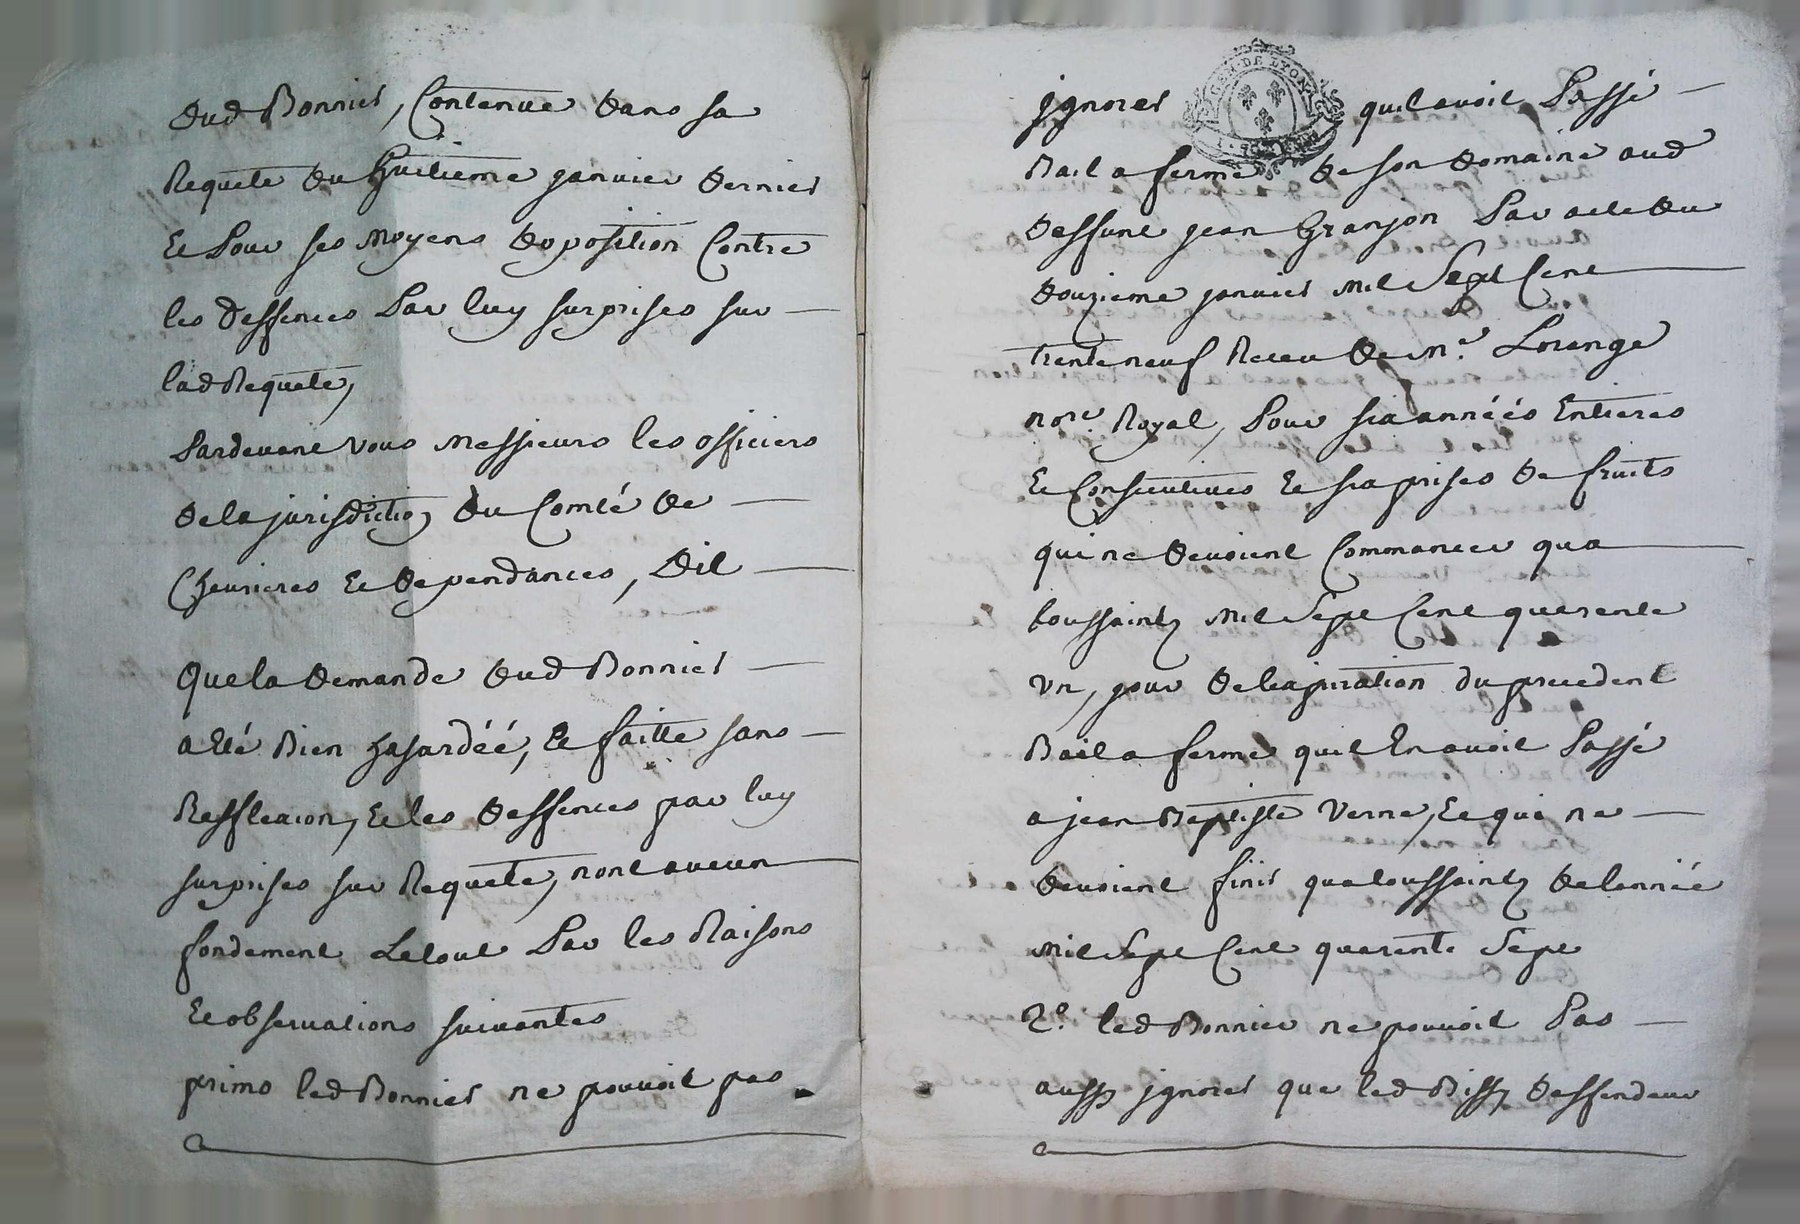 dud Bonnier, Contenue dans sa
Requete du huitieme janvier dernier
Et Pour ses Moyens doposition Contre
les deffences Par luy surprises sur
lad Requete,
Pardevant vous Messieurs les officiers
de la jurisdiction du Comté de
Chevrieres Et dependances, Dit
Que la demande dud Bonnier
a Eté Bien hasardéé, Et faitte sans
Reffleaion, Et les deffences par luy
surprises sur Requete, nont aucun
fondement Le tout Par les Raisons
Et observations suivantes
primo led Bonnier ne pouvoit pas
jgnorer quil avoit Passé
GEN. DE LYON
Bail a ferme de son domaine aud
deffunt jean Granjon Par acte du
douzieme janvier Mil Sept Cent
trente neuf Receu de Me. Lorange
nore. Royal, Pour sia annéés Entieres
Et Consecutives Et sia prises de fruits
qui ne devoient Commancer qua
toussaintz Mil Sept Cent quarente
Vn, jour de leapiration du precedent
Bail a ferme quil En avoit Passé
a jean Baptiste Verne, Et qui ne
devoient finir qua toussaintz de lannéé
Mil Sept Cent quarente Sept
2o. led Bonnier ne pouvoit Pas
aussy jgnorer que led Bissy deffendeur